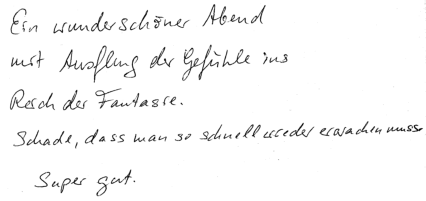 Ein wunderschöner Abend
mit Ausflug der Gefühle ins
Reich der Fantasie.
Schade, dass man so schnell wieder erwachen muss
Super gut.